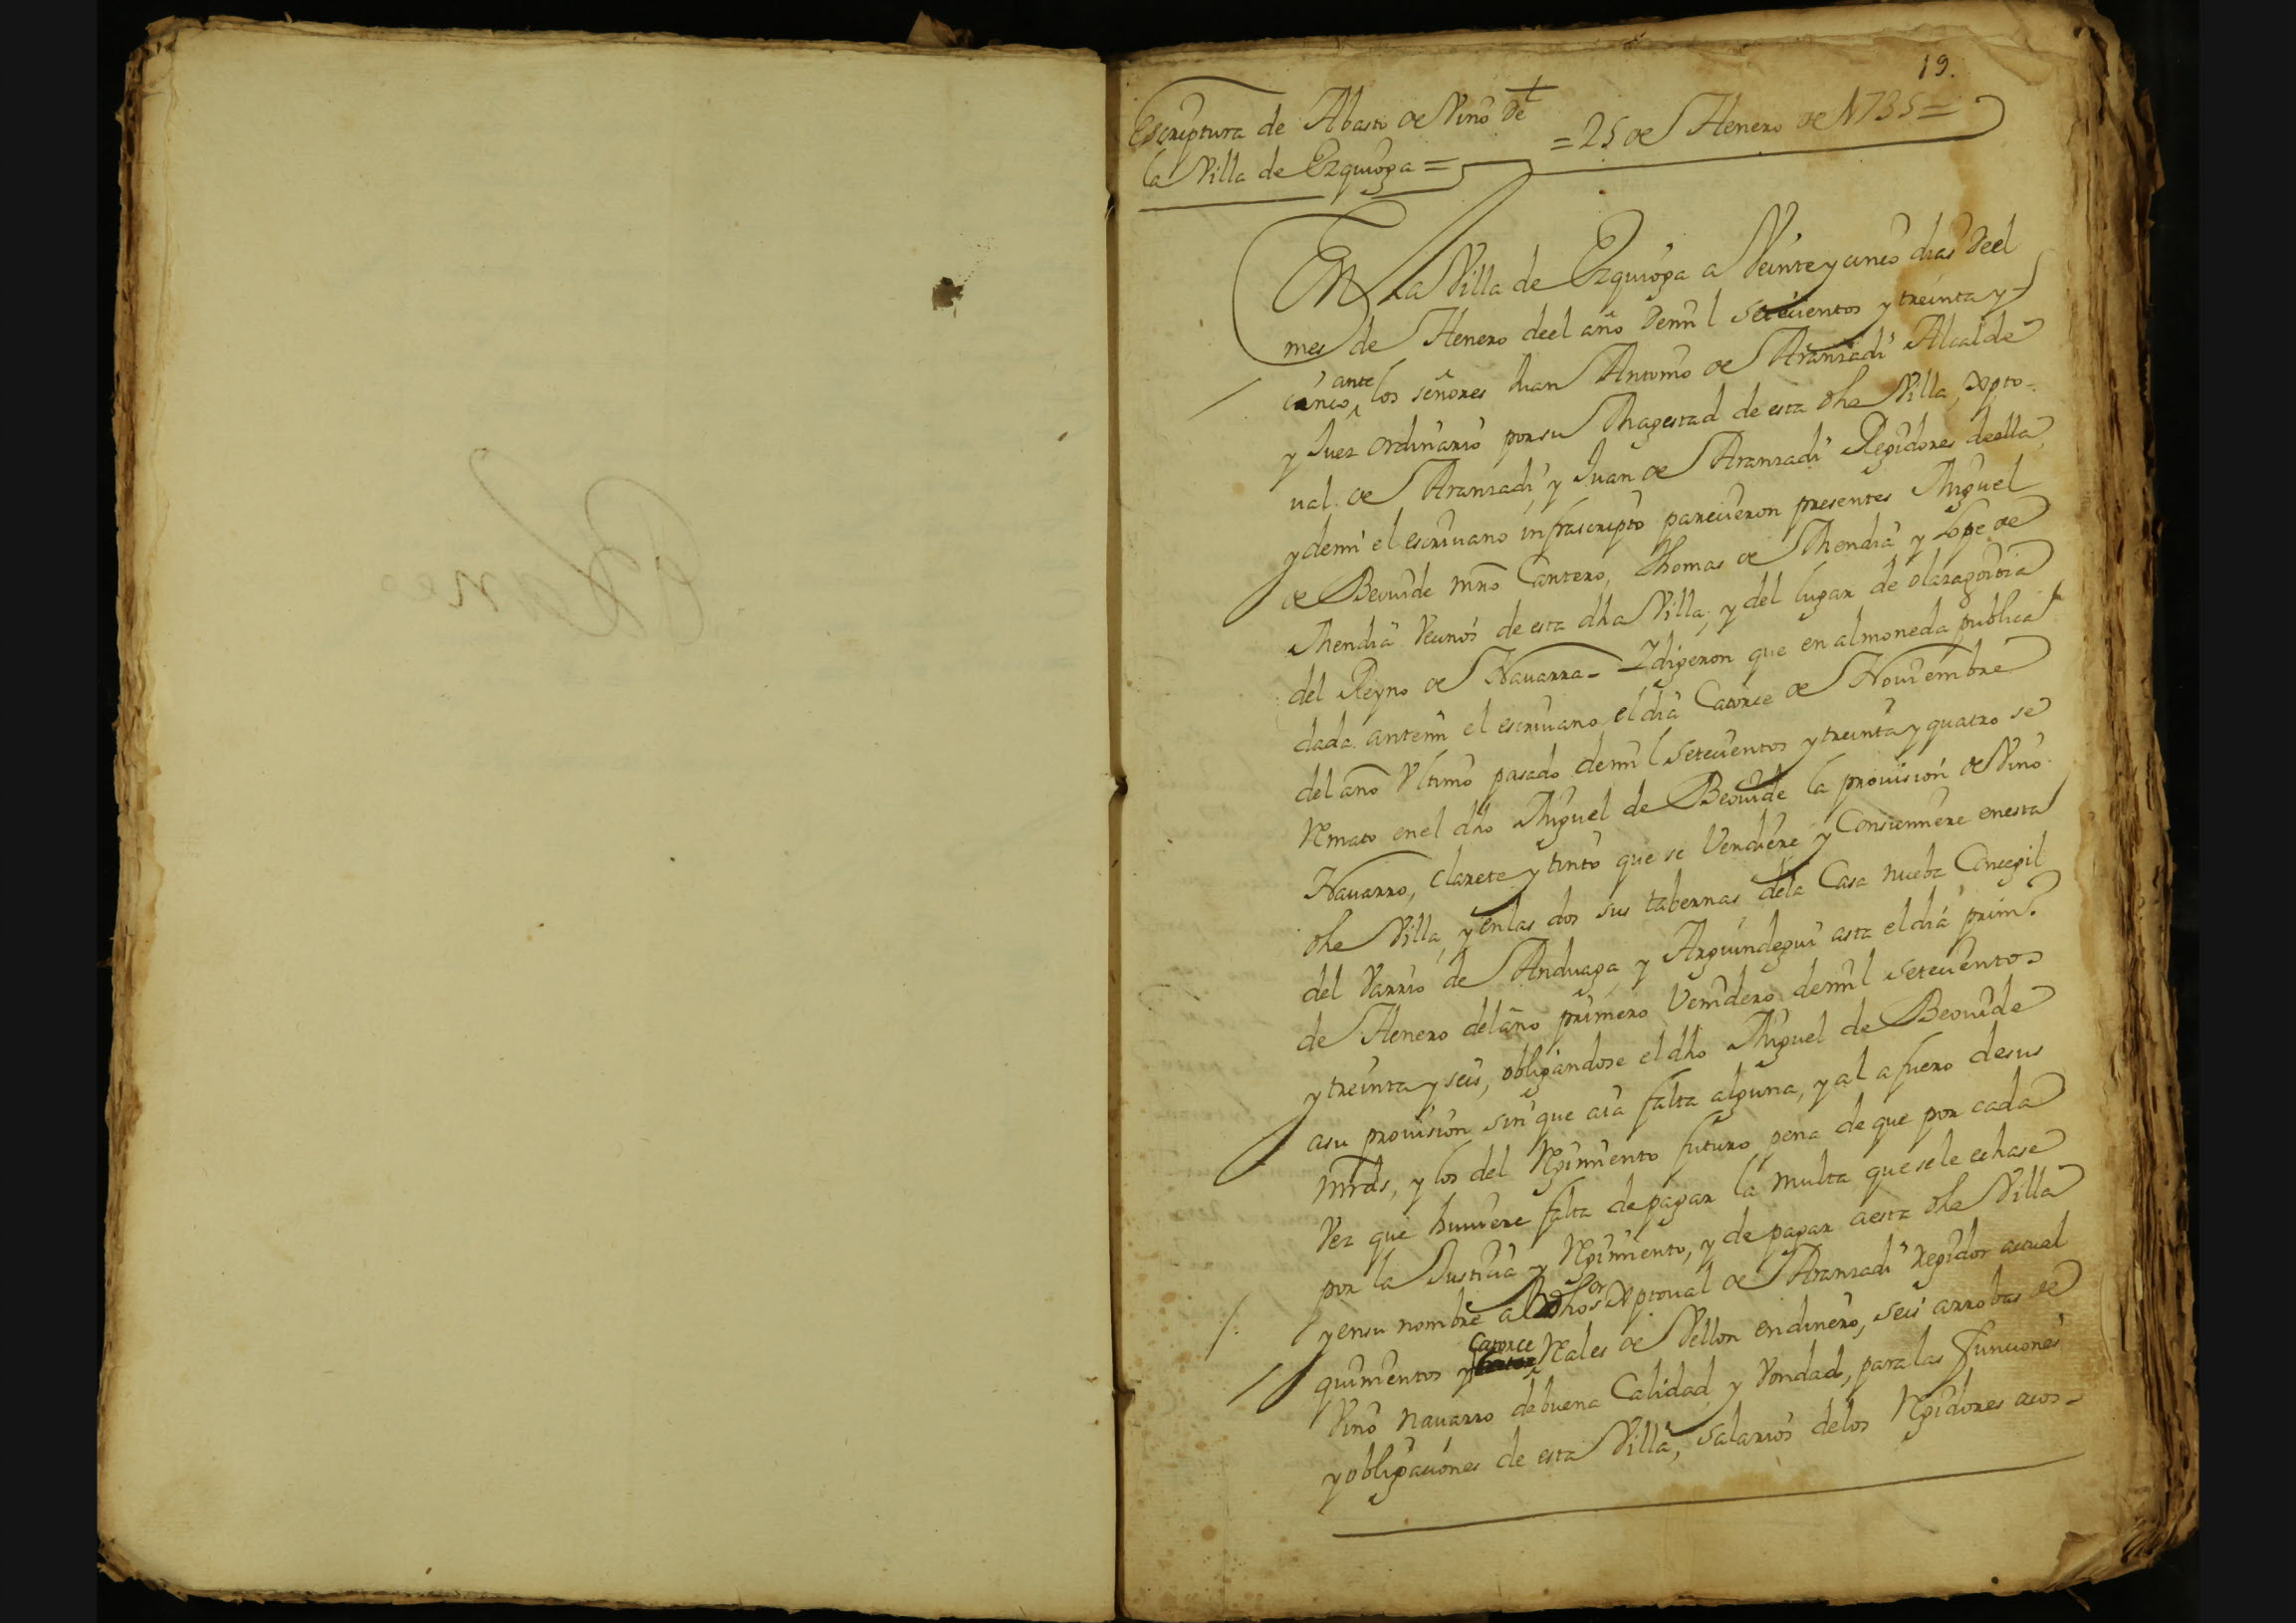 19.
Escriptura de Abasto de Vino de
la Villa de Ezquioga =
= 25 de Henero de 1735 =
En La Villa de Ezquioga a Veinte y cinco dias deel
mes de Henero deel año de mil setecientos y treinta y
cinco, ante los señores Juan Antonio de Aranzadi Alcalde
y Juez ordinario por su Magestad de esta dha Villa, Xpto-
ual de Aranzadi y Juan de Aranzadi Regidores deella,
y de mi el escriuano infrascripto parecieron presentes Miguel
de Beouide mro Cantero, Thomas de Mendia y Lope de
Mendia Vecinos de esta dha Villa, y del lugar de olazagoitia
del Reyno de Nauarra - Y digeron que en almoneda publica
dada ante mi el escriuano el dia Catorce de Nouiembre
del año Vltimo pasado de mil setecientos y treinta y quatro se
Rmato en el dho Miguel de Beouide la prouision de Vino
Nauarro, clarete y tinto que se Vendiere y Consumiere en esta
dha Villa, y en las dos sus tabernas de la Casa nueba Concegil
del Varrio de Anduaga, y Arguindegui asta el dia prim.o
de Henero del año primero Venidero de mil setecientos
y treinta y seis, obligandose el dho Miguel de Beouide
a su prouision sin que aia falta alguna, y al afuero de sus
mrds, y los del Rgimiento futuro pena de que por cada
Vez que huuiere falta de pagar la multa que se le echase
por la Justicia y Rgimiento, y de pagar a esta dha Villa
y en su nombre al dho sor Xptoual de Aranzadi Regidor actual
quinientos y catorce Rales de Vellon en dinero, seis arrobas de
Vino nauarro de buena Calidad y Vondad, para las funciones
y obligaciones de esta Villa, salarios de los Rgidores acos-